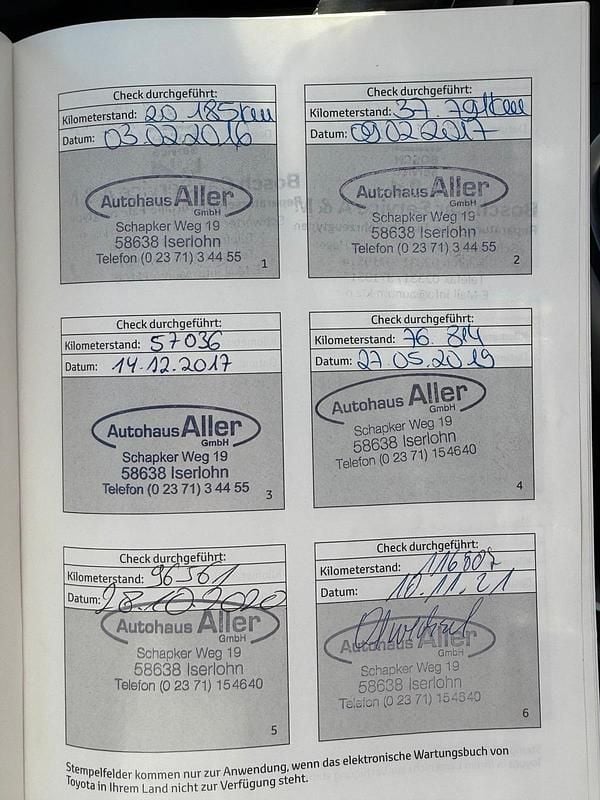 Check durchgeführt:
Kilometerstand: 20 185 km
Datum: 03.02.2016
Autohaus Aller
GmbH
Schapker Weg 19
58638 Iserlohn
Telefon (0 23 71) 3 44 55
1
Check durchgeführt:
Kilometerstand: 37. 791 km
Datum: 09.02.2017
Autohaus Aller
GmbH
Schapker Weg 19
58638 Iserlohn
Telefon (0 23 71) 3 44 55
2
Check durchgeführt:
Kilometerstand: 57036
Datum: 14.12.2017
Autohaus Aller
GmbH
Schapker Weg 19
58638 Iserlohn
Telefon (0 23 71) 3 44 55
3
Check durchgeführt:
Kilometerstand: 76. 814
Datum: 27.05.2019
Autohaus Aller
GmbH
Schapker Weg 19
58638 Iserlohn
Telefon (0 23 71) 154640
4
Check durchgeführt:
Kilometerstand: 96561
Datum: 28.10.2020
Autohaus Aller
GmbH
Schapker Weg 19
58638 Iserlohn
Telefon (0 23 71) 154640
5
Check durchgeführt:
Kilometerstand: 116807
Datum: 10.11.21
Autohaus Aller
GmbH
Schapker Weg 19
58638 Iserlohn
Telefon (0 23 71) 154640
6
Stempelfelder kommen nur zur Anwendung, wenn das elektronische Wartungsbuch von
Toyota in Ihrem Land nicht zur Verfügung steht.